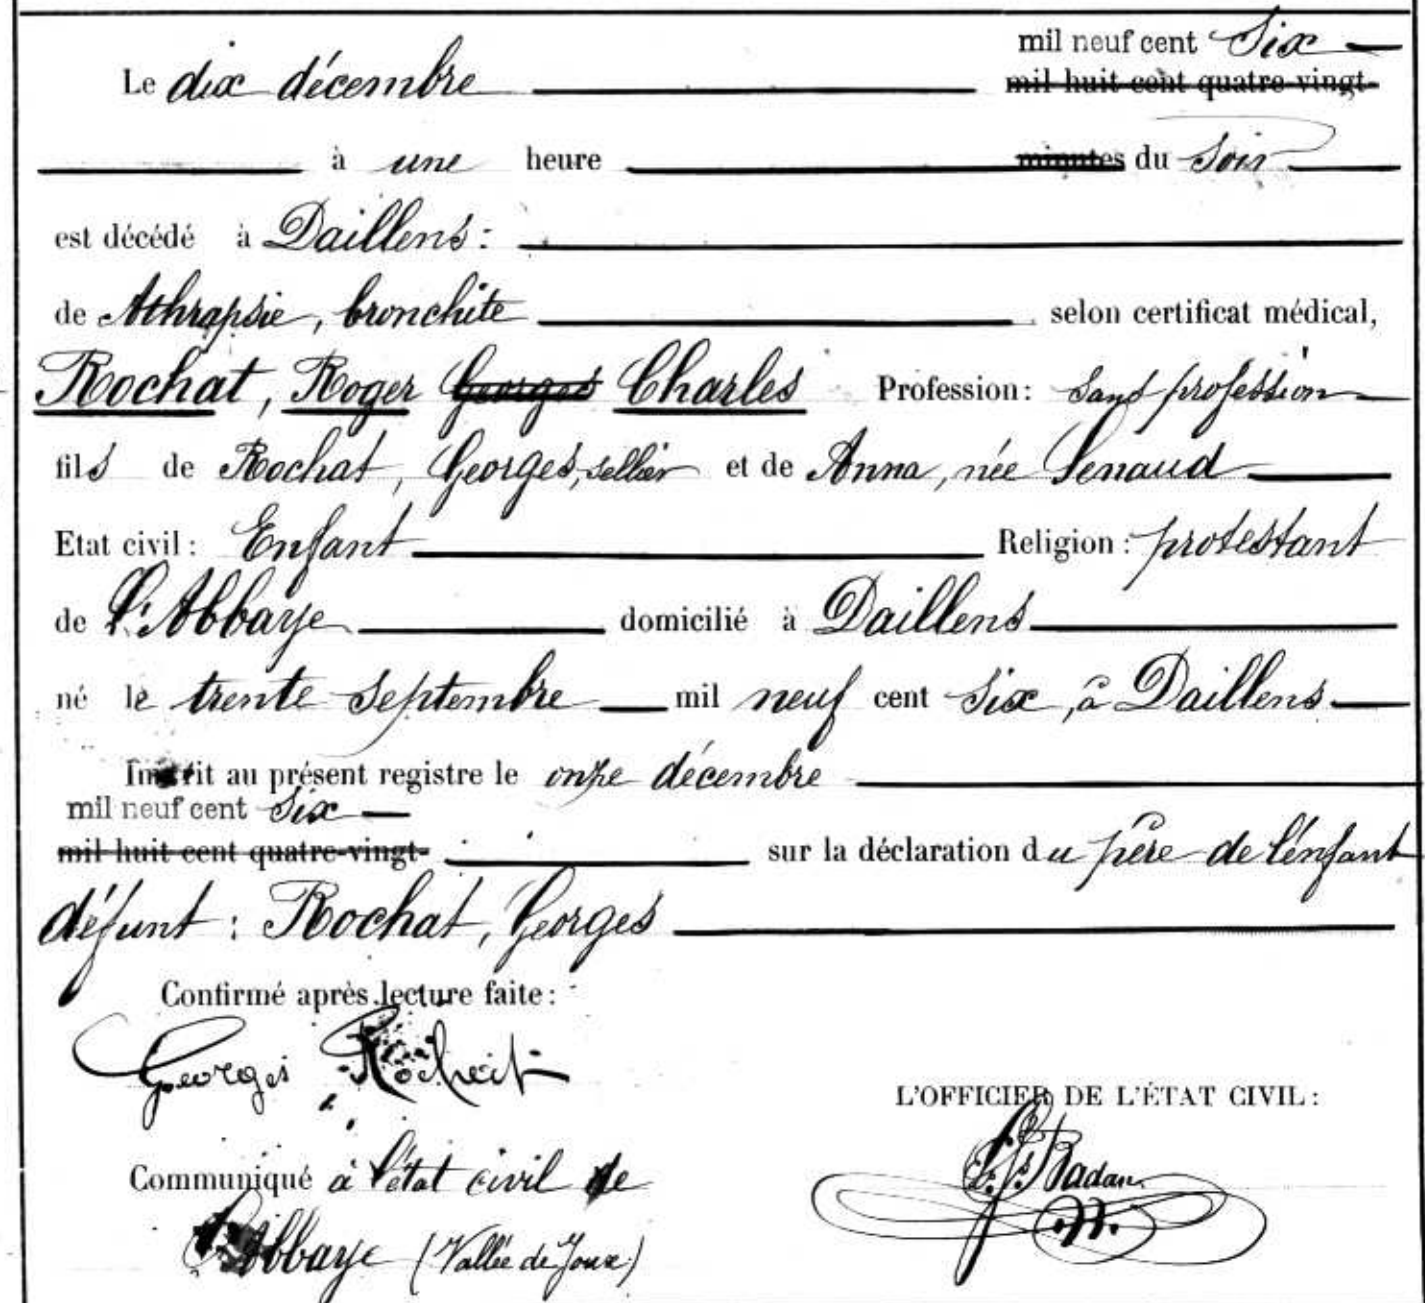 mil neuf cent Six
Le dix décembre mil huit cent quatre-vingt-
à une heure minutes du soir
est décédé à Daillens:
de Athrapsie, bronchite selon certificat médical,
Rochat, Roger Georges Charles Profession: sans profession
fils de Rochat, Georges, sellier et de Anna, née Senaud
Etat civil: Enfant Religion: protestant
de L'Abbaye domicilié à Daillens
né le trente septembre mil neuf cent six, à Daillens
Inscrit au présent registre le onze décembre
mil neuf cent six
mil huit cent quatre-vingt- sur la déclaration du père de l'enfant
défunt: Rochat, Georges
Confirmé après lecture faite:
Georges Rochat
L'OFFICIER DE L'ÉTAT CIVIL:
Badan
Communiqué à l'état civil de
L'Abbaye (Vallée de Joux)